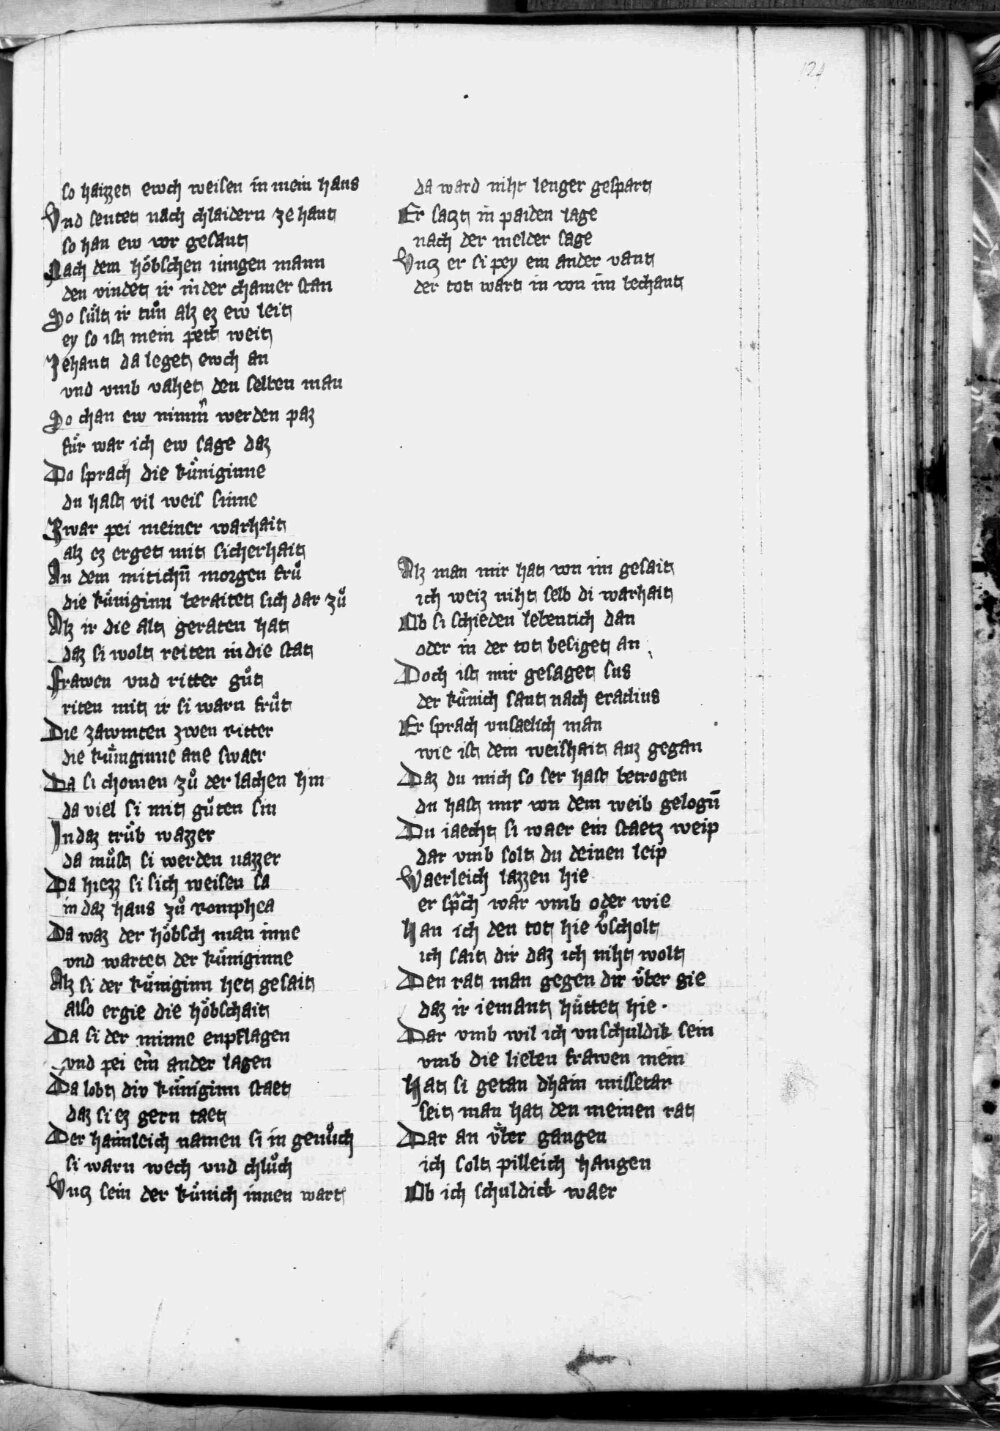 124
so haizzet ewch weisen in mein haus
Vnd sentet nach chlaidern ze hant
so han ew vor gesant
Nach dem höbschen iungen mann
den vindet ir in der chamer stan
So sült ir tůn alz ez ew leit
ey so ist mein pett weit
Zehant da leget ewch an
vnd vmb vahet den selben man
So chan ew nimm̄ werden paz
für war ich ew sage daz
Do sprach die küniginne
du hast vil weis sinne
Zwar pei meiner warhait
alz ez erget mit sicherhait
An dem mitichn̄ morgen frů
die küniginn beraitet sich dar zů
Alz ir die alt geraten hat
daz si wolt reiten in die stat
Frawen vnd ritter gůt
riten mit ir si warn frůt
Die zawmten zwen ritter
die küniginne ane swaer
Da si chomen zů der lachen hin
da viel si mit gůten sin
In daz trůb wazzer
da můst si werden nazzer
Da hiezz si sich weisen sa
in daz haus zů romphea
Da waz der höbsch man inne
vnd wartet der küniginne
Alz si der küniginn het gesait
also ergie die höbschait
Da si der minne enpflagen
vnd pei ein ander lagen
Da lobt div küniginn staet
daz si ez gern taet
Der haimleich namen si in genůch
si warn wech vnd chlůch
Vntz sein der künich innen wart
da ward niht lenger gespart
Er satzt in paiden lage
nach der melder sage
Vntz er si pey ein ander vant
der tot wart in von im bechant
Alz man mir hat von im gesait
ich weiz niht selb di warhait
Ob si schieden lebentich dan
oder in der tot besiget an
Doch ist mir gesaget sus
der künich sant nach eradius
Er sprach vnsaelich man
wie ist dem weishait auz gegan
Daz du mich so ser hast betrogen
du hast mir von dem weib gelogn̄
Du iaecht si waer ein staetz weip
dar vmb solt du deinen leip
Waerleich lazzen hie
er sp̄ch war vmb oder wie
Han ich den tot hie v̄scholt
ich sait dir daz ich niht wolt
Den rat man gegen dir über gie
daz ir iemant hůttet hie
Dar vmb wil ich vnschuldik sein
vmb die lieben frawen mein
Hat si getan dhain missetat
seit man hat den meinen rat
Dar an über gangen
ich solt pilleich hangen
Ob ich schuldick waer